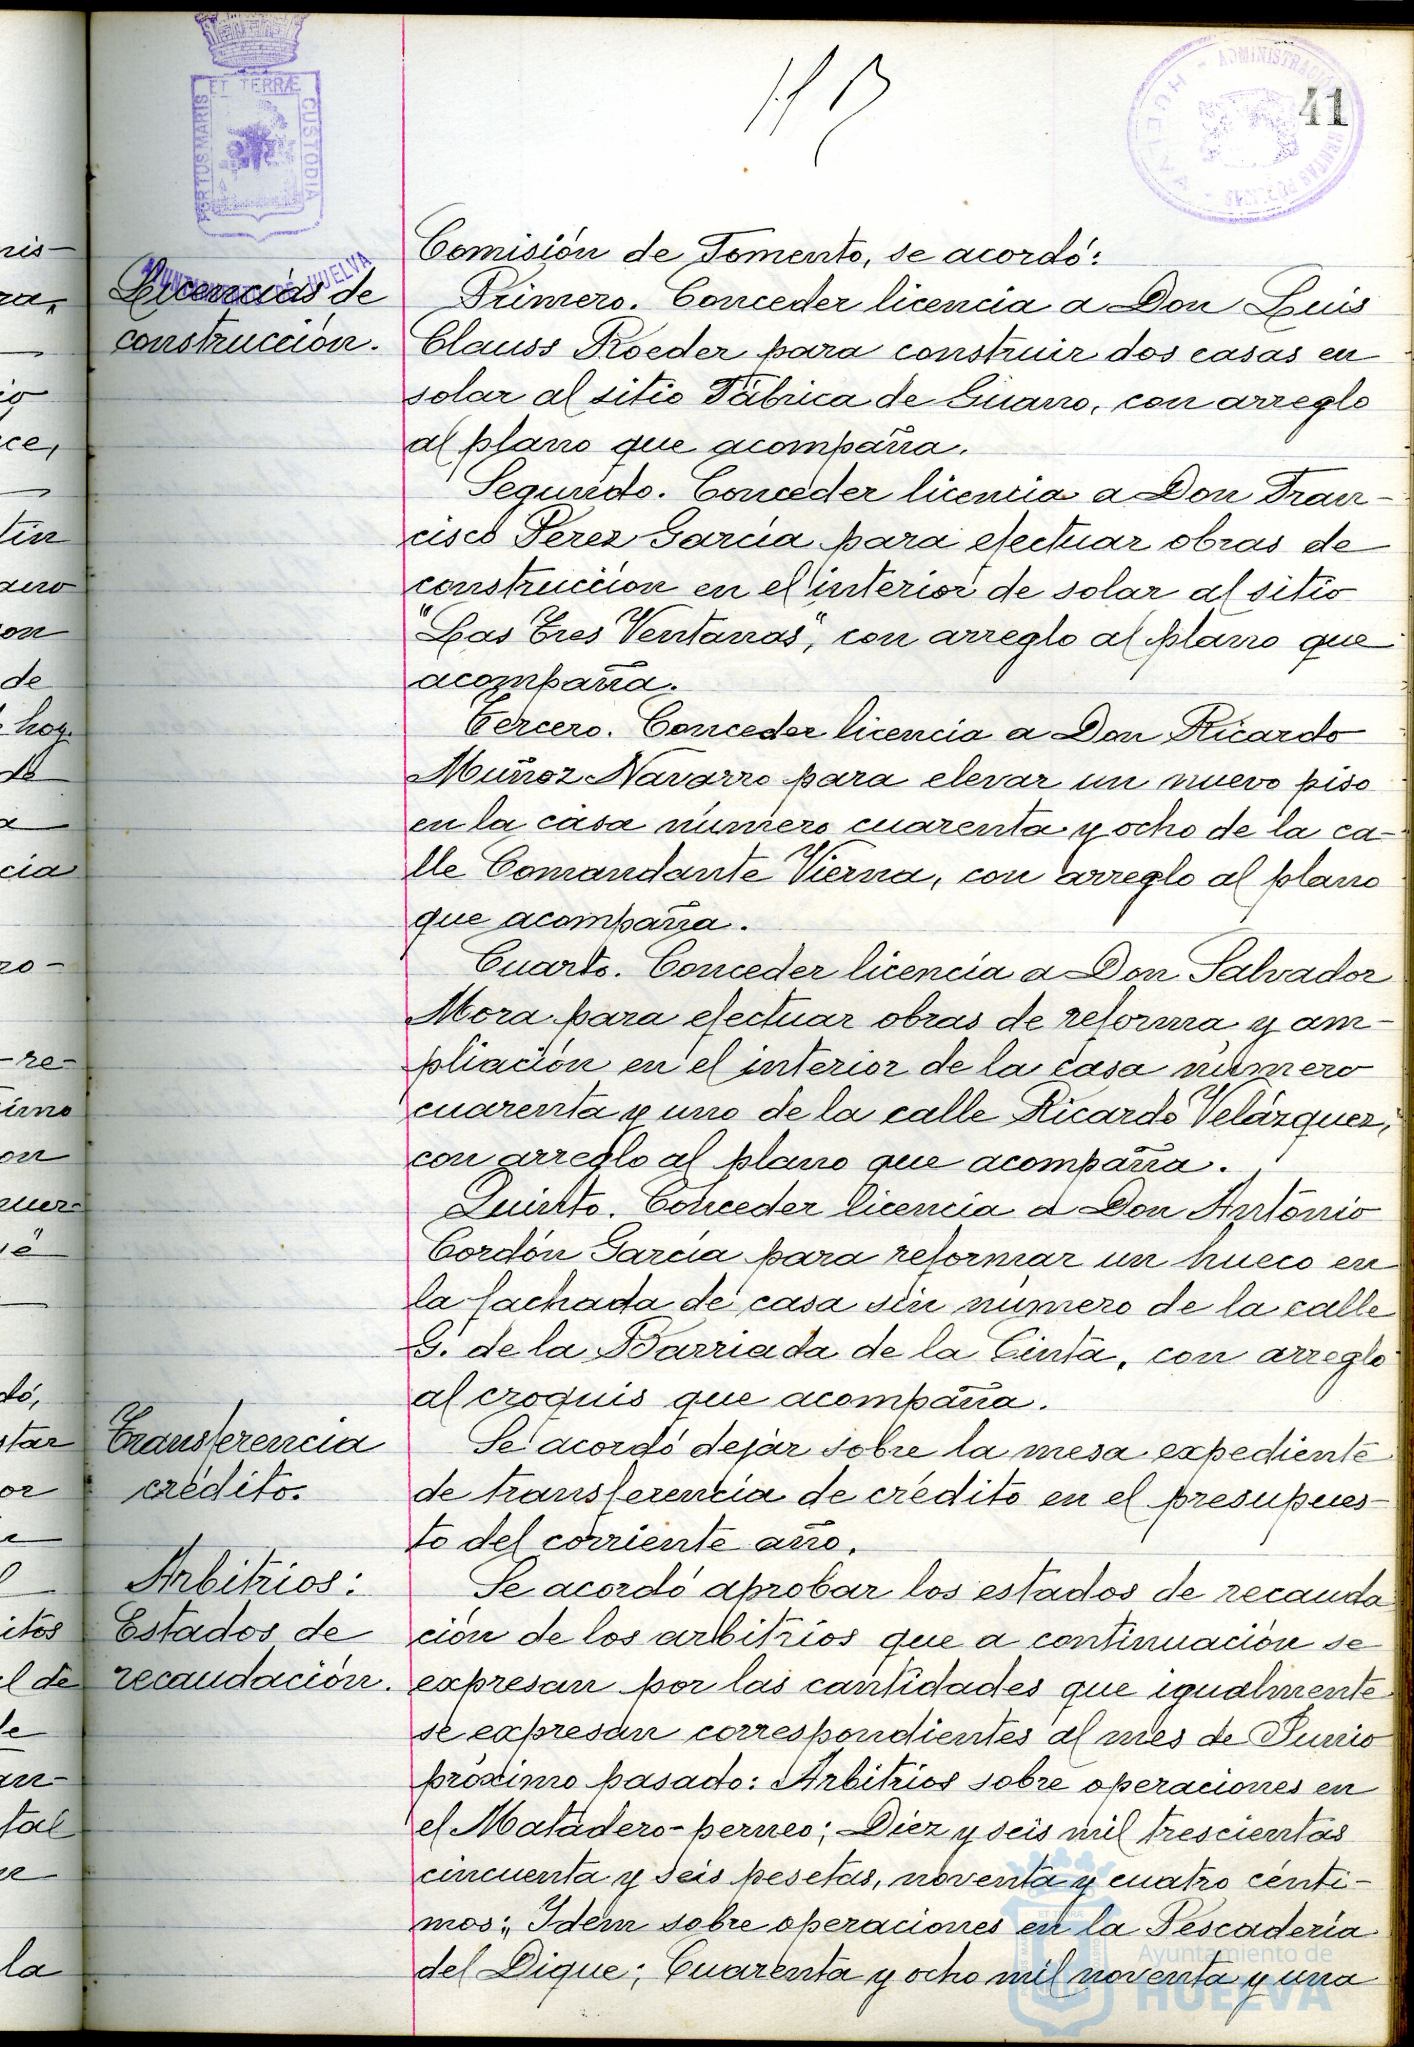 41
PORTUS MARIS ET TERRÆ CUSTODIA
AYUNTAMIENTO DE HUELVA
Comisión de Fomento, se acordó:
Licencias de
construcción.
Primero. Conceder licencia a Don Luis
Clauss Roeder para construir dos casas en
solar al sitio Fábrica de Guano, con arreglo
al plano que acompaña.
Segundo. Conceder licencia a Don Fran-
cisco Perez García para efectuar obras de
construcción en el interior de solar al sitio
"Las Tres Ventanas", con arreglo al plano que
acompaña.
Tercero. Conceder licencia a Don Ricardo
Muñoz Navarro para elevar un nuevo piso
en la casa número cuarenta y ocho de la ca-
lle Comandante Vierna, con arreglo al plano
que acompaña.
Cuarto. Conceder licencia a Don Salvador
Mora para efectuar obras de reforma y am-
pliación en el interior de la casa número
cuarenta y uno de la calle Ricardo Velázquez,
con arreglo al plano que acompaña.
Quinto. Conceder licencia a Don Antonio
Cordón García para reformar un hueco en
la fachada de casa sin número de la calle
G. de la Barriada de la Cinta, con arreglo
al croquis que acompaña.
Transferencia
crédito.
Se acordó dejar sobre la mesa expediente
de transferencia de crédito en el presupues-
to del corriente año.
Arbitrios:
Estados de
recaudación.
Se acordó aprobar los estados de recauda
ción de los arbitrios que a continuación se
expresan por las cantidades que igualmente
se expresan correspondientes al mes de Junio
próximo pasado: Arbitrios sobre operaciones en
el Matadero-perneo; Diez y seis mil trescientas
cincuenta y seis pesetas, noventa y cuatro cénti-
mos:, Idem sobre operaciones en la Pescadería
del Dique; Cuarenta y ocho mil noventa y una
Ayuntamiento de
HUELVA